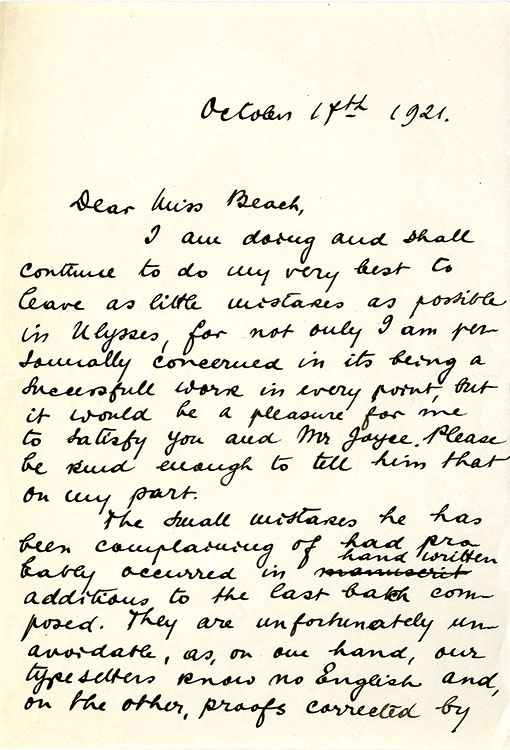 October 17th 1921.
Dear Miss Beach,
I am doing and shall
continue to do my very best to
leave as little mistakes as possible
in Ulysses, for not only I am per-
sonnally concerned in its being a
successfull work in every point, but
it would be a pleasure for me
to satisfy you and Mr Joyce. Please
be kind enough to tell him that
on my part.
The small mistakes he has
been complaining of had pro
hand written
bably occurred in manuscrit
additions to the last batch com-
posed. They are unfortunately un-
avoidable, as, on one hand, our
typesetters know no English and,
on the other, proofs corrected by